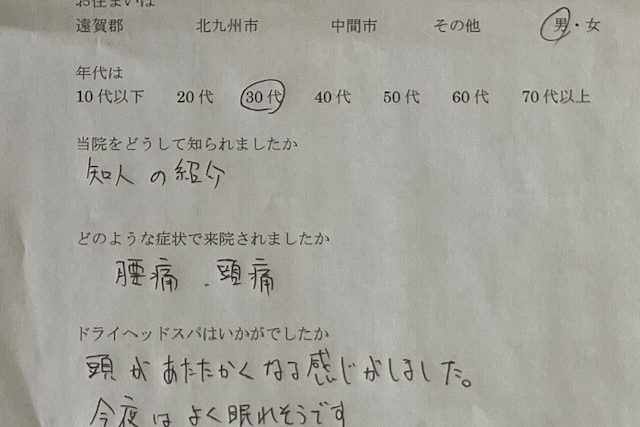 お住まいは
遠賀郡 北九州市 中間市 その他 男・女
年代は
10代以下 20代 30代 40代 50代 60代 70代以上
当院をどうして知られましたか
知人の紹介
どのような症状で来院されましたか
腰痛、頭痛
ドライヘッドスパはいかがでしたか
頭があたたかくなる感じがしました。
今夜はよく眠れそうです